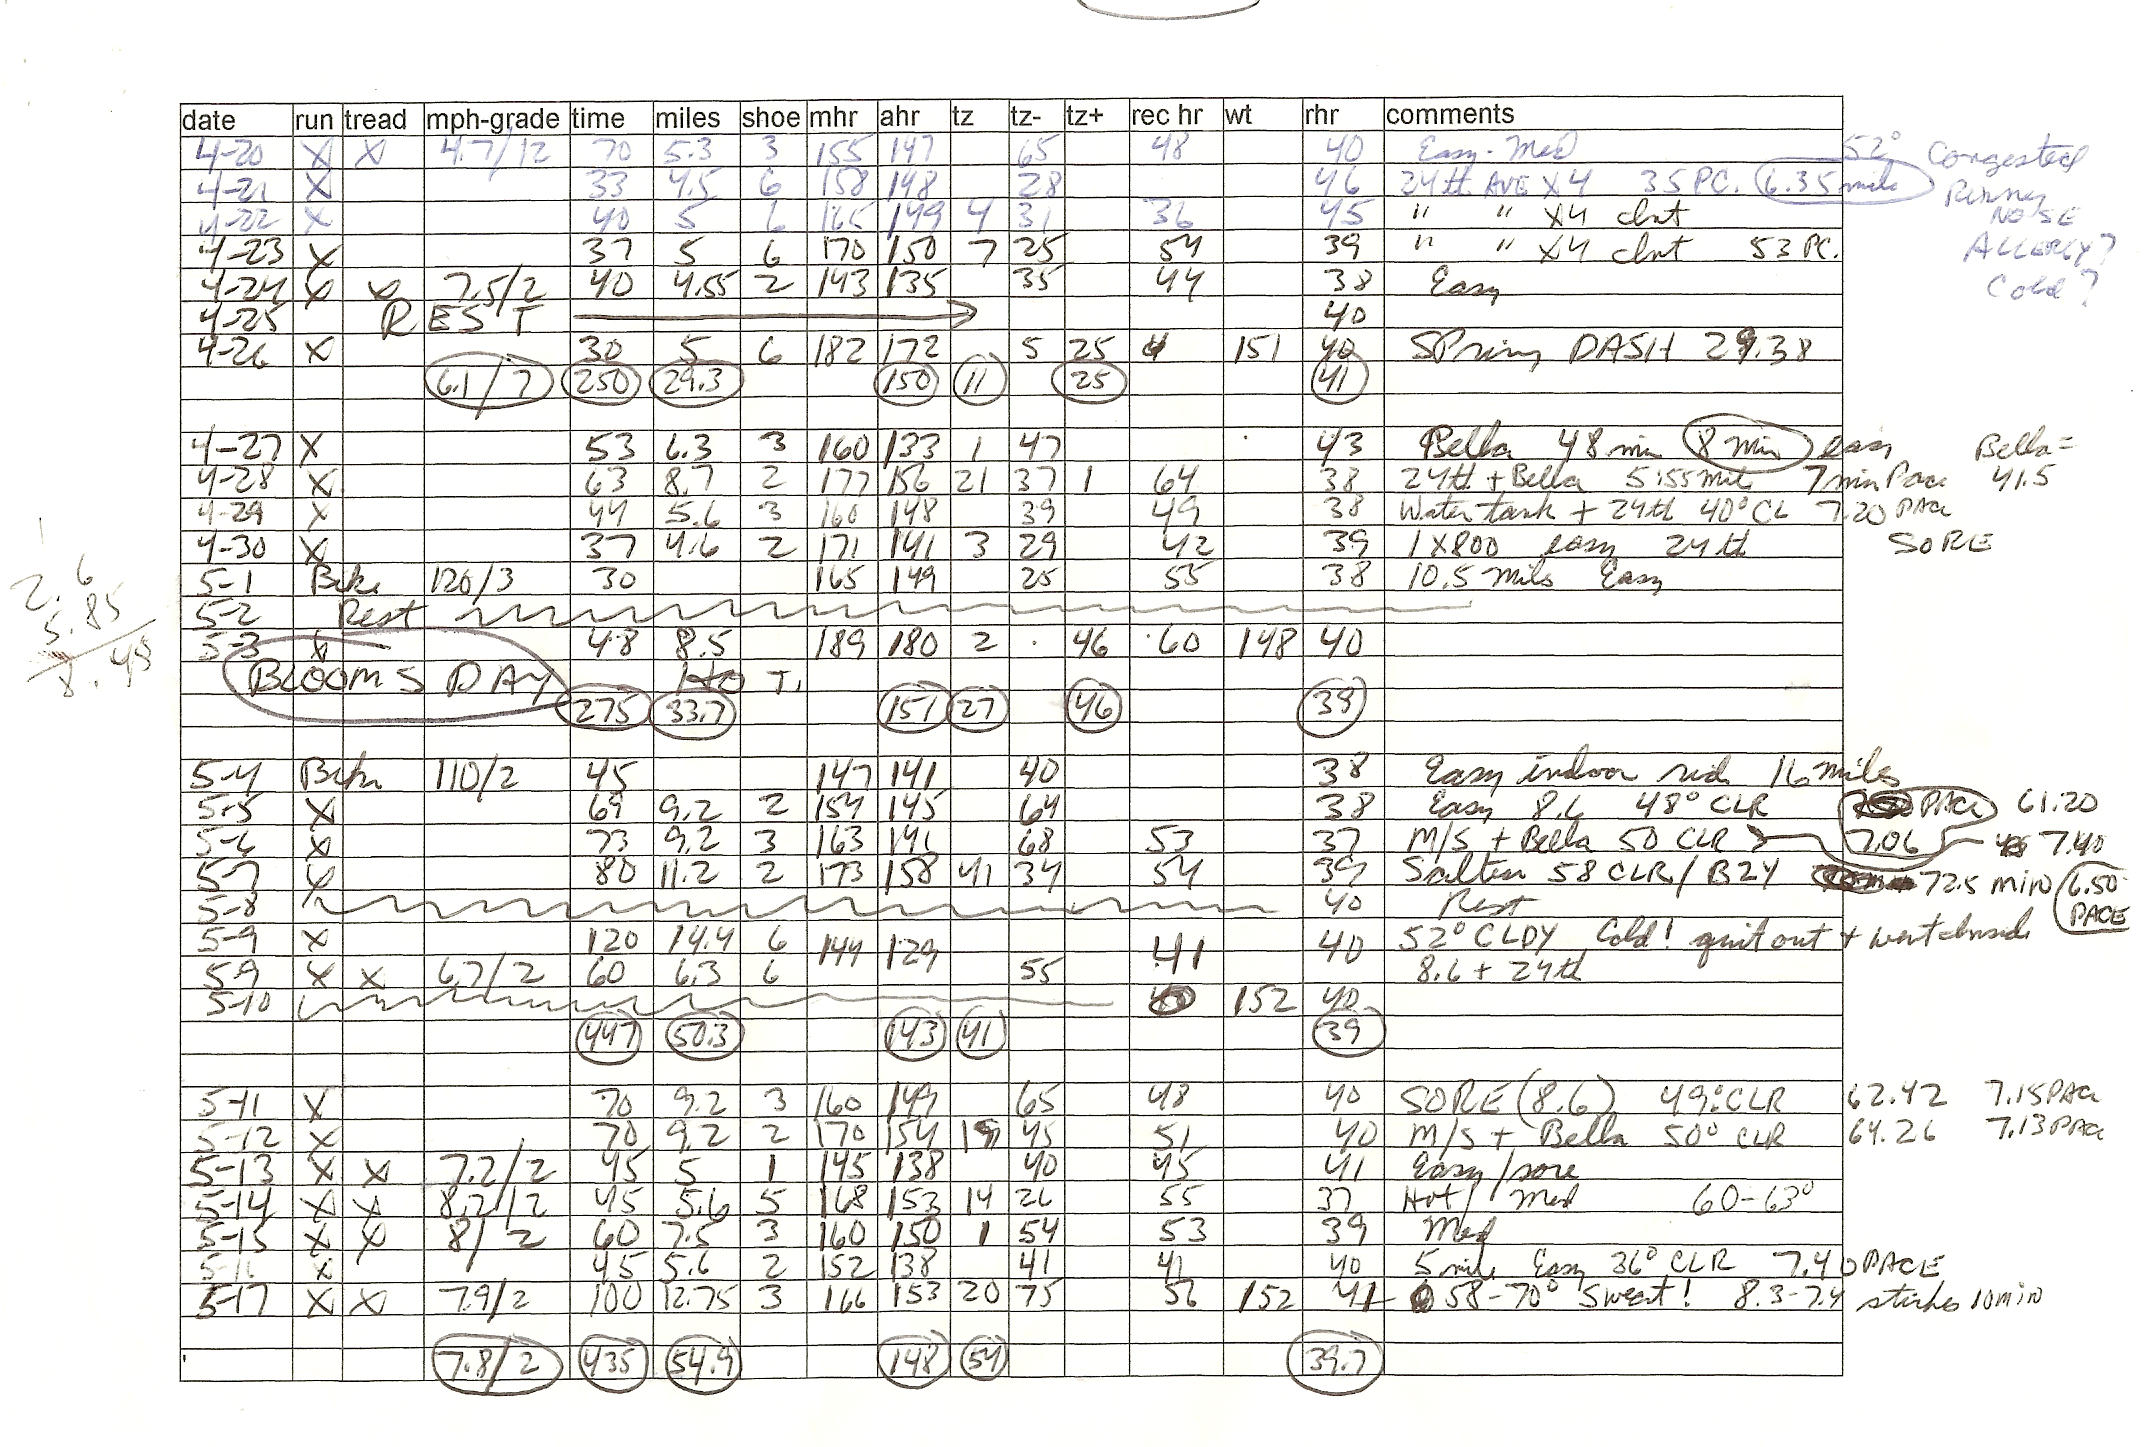 date run tread mph-grade time miles shoe mhr ahr tz tz- tz+ rec hr wt rhr comments
4-20 X X 4.7/12 70 5.3 3 155 147 65 48 40 Easy-Med 52° Congested
4-21 X 33 4.5 6 158 148 28 46 24th AVE X4 35 PC. 6.35 mile Runny
4-22 X 40 5 6 165 149 4 31 36 45 " " X4 NOSE
4-23 X 37 5 6 170 150 7 25 54 39 " " X4 53 PC. ALLERGY?
4-24 X X 7.5/2 40 4.55 2 143 135 35 44 38 Easy Cold?
4-25 REST 40
4-26 X 30 5 6 182 172 5 25 151 40 SPring DASH 29.38
6.1/7 250 29.3 150 11 25 41
4-27 X 53 6.3 3 160 133 1 47 43 Bella 48 min 8 min easy Bella =
4-28 X 63 8.7 2 177 156 21 37 1 64 38 24th + Bella 5:55 mile 7 min Pace 41.5
4-29 X 44 5.6 3 160 148 39 49 38 Water tank + 24th 40° CL 7.20 PACE
4-30 X 37 4.6 2 171 141 3 29 42 39 1 X 800 easy 24th SORE
5-1 Bike 120/3 30 165 149 25 55 38 10.5 miles Easy
1
2.6
5.85
8.45
5-2 Rest
5-3 X 48 8.5 189 180 2 46 60 148 40
BLOOMSDAY HOT.
275 33.7 151 27 46 39
5-4 Bike 110/2 45 147 141 40 38 Easy indoor ride 16 miles
5-5 X 69 9.2 2 154 145 64 38 Easy 8.6 48° CLR PACE 61.20
5-6 X 73 9.2 3 163 141 68 53 37 M/S + Bella 50 CLR 7.06 7.40
5-7 X 80 11.2 2 173 158 41 34 54 39 58 CLR/BZY 72.5 min/6.50 PACE
5-8 40 Rest
5-9 X 120 14.4 6 144 129 41 40 52° CLDY Cold! quit out + went inside
5-9 X X 6.7/2 60 6.3 6 55 8.6 + 24th
5-10 152 40
447 50.3 143 41 39
5-11 X 70 9.2 3 160 149 65 48 40 SORE (8.6) 49° CLR 62.42 7.15 PACE
5-12 X 70 9.2 2 170 154 19 45 51 40 M/S + Bella 50° CLR 64.26 7.13 PACE
5-13 X X 7.2/2 45 5 1 145 138 40 45 41 Easy/sore
5-14 X X 8.2/2 45 5.6 5 168 153 14 26 55 37 Hot/ Med 60-63°
5-15 X X 8/2 60 7.5 3 160 150 1 54 53 39 Med
5-16 X 45 5.6 2 152 138 41 41 40 5 mile Easy 36° CLR 7.40 PACE
5-17 X X 7.9/2 100 12.75 3 166 153 20 75 56 152 41 58-70° Sweat! 8.3-7.4 10 min
7.8/2 435 54.9 148 54 39.7